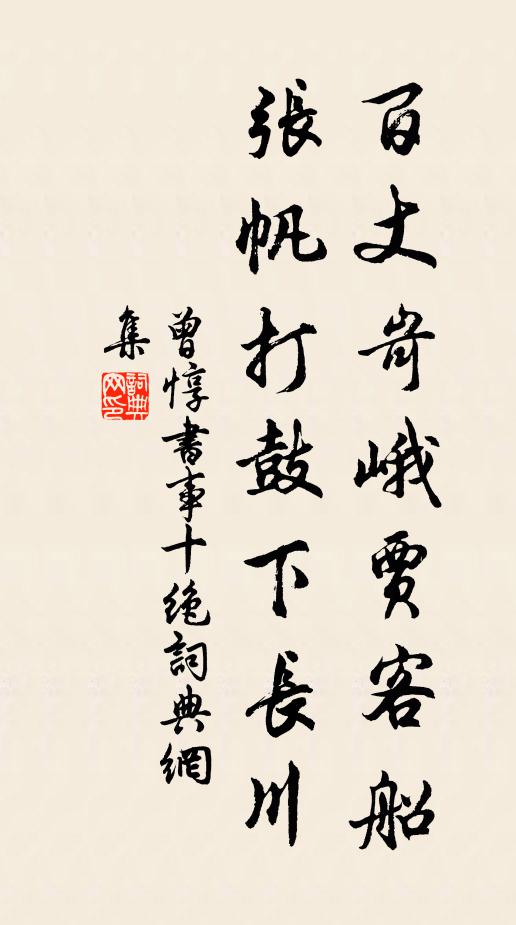 百丈岢峨賈客船
張帆打鼓下長川
曾惇書事十絶詞典網
集
詞典
网印